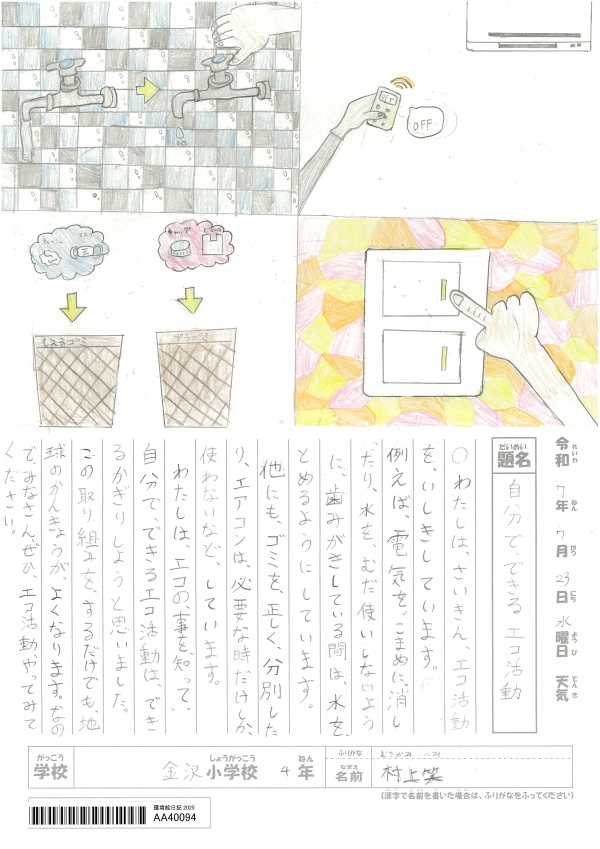 OFF
もえるゴミ
プラゴミ
令和7年7月23日水曜日 天気
れいわ ねん がつ にち ようび てんき
だいめい
題名
自分で、できる エコ活動
○わたしは、さいきん、エコ活動
を、いしきしています。
例えば、電気を、こまめに、消し
たり、水を、むだ使いしないよう
に、歯みがきしている間は、水を、
とめるようにしています。
他にも、ゴミを、正しく、分別した
り、エアコンは、必要な時だけしか、
使わないなど、しています。
わたしは、エコの事を知って、
自分で、できるエコ活動は、でき
るかぎりしようと思いました。
この取り組みを、するだけでも、地
球のかんきょうが、よくなります。なの
で、みなさん、ぜひ、エコ活動、やってみて
ください。
がっこう しょうがっこう ねん
学校 金沢 小学校 4年
ふりがな むらかみ
なまえ
名前 村上笑
(漢字で名前を書いた場合は、ふりがなをふってください)
環境絵日記 2025
AA40094